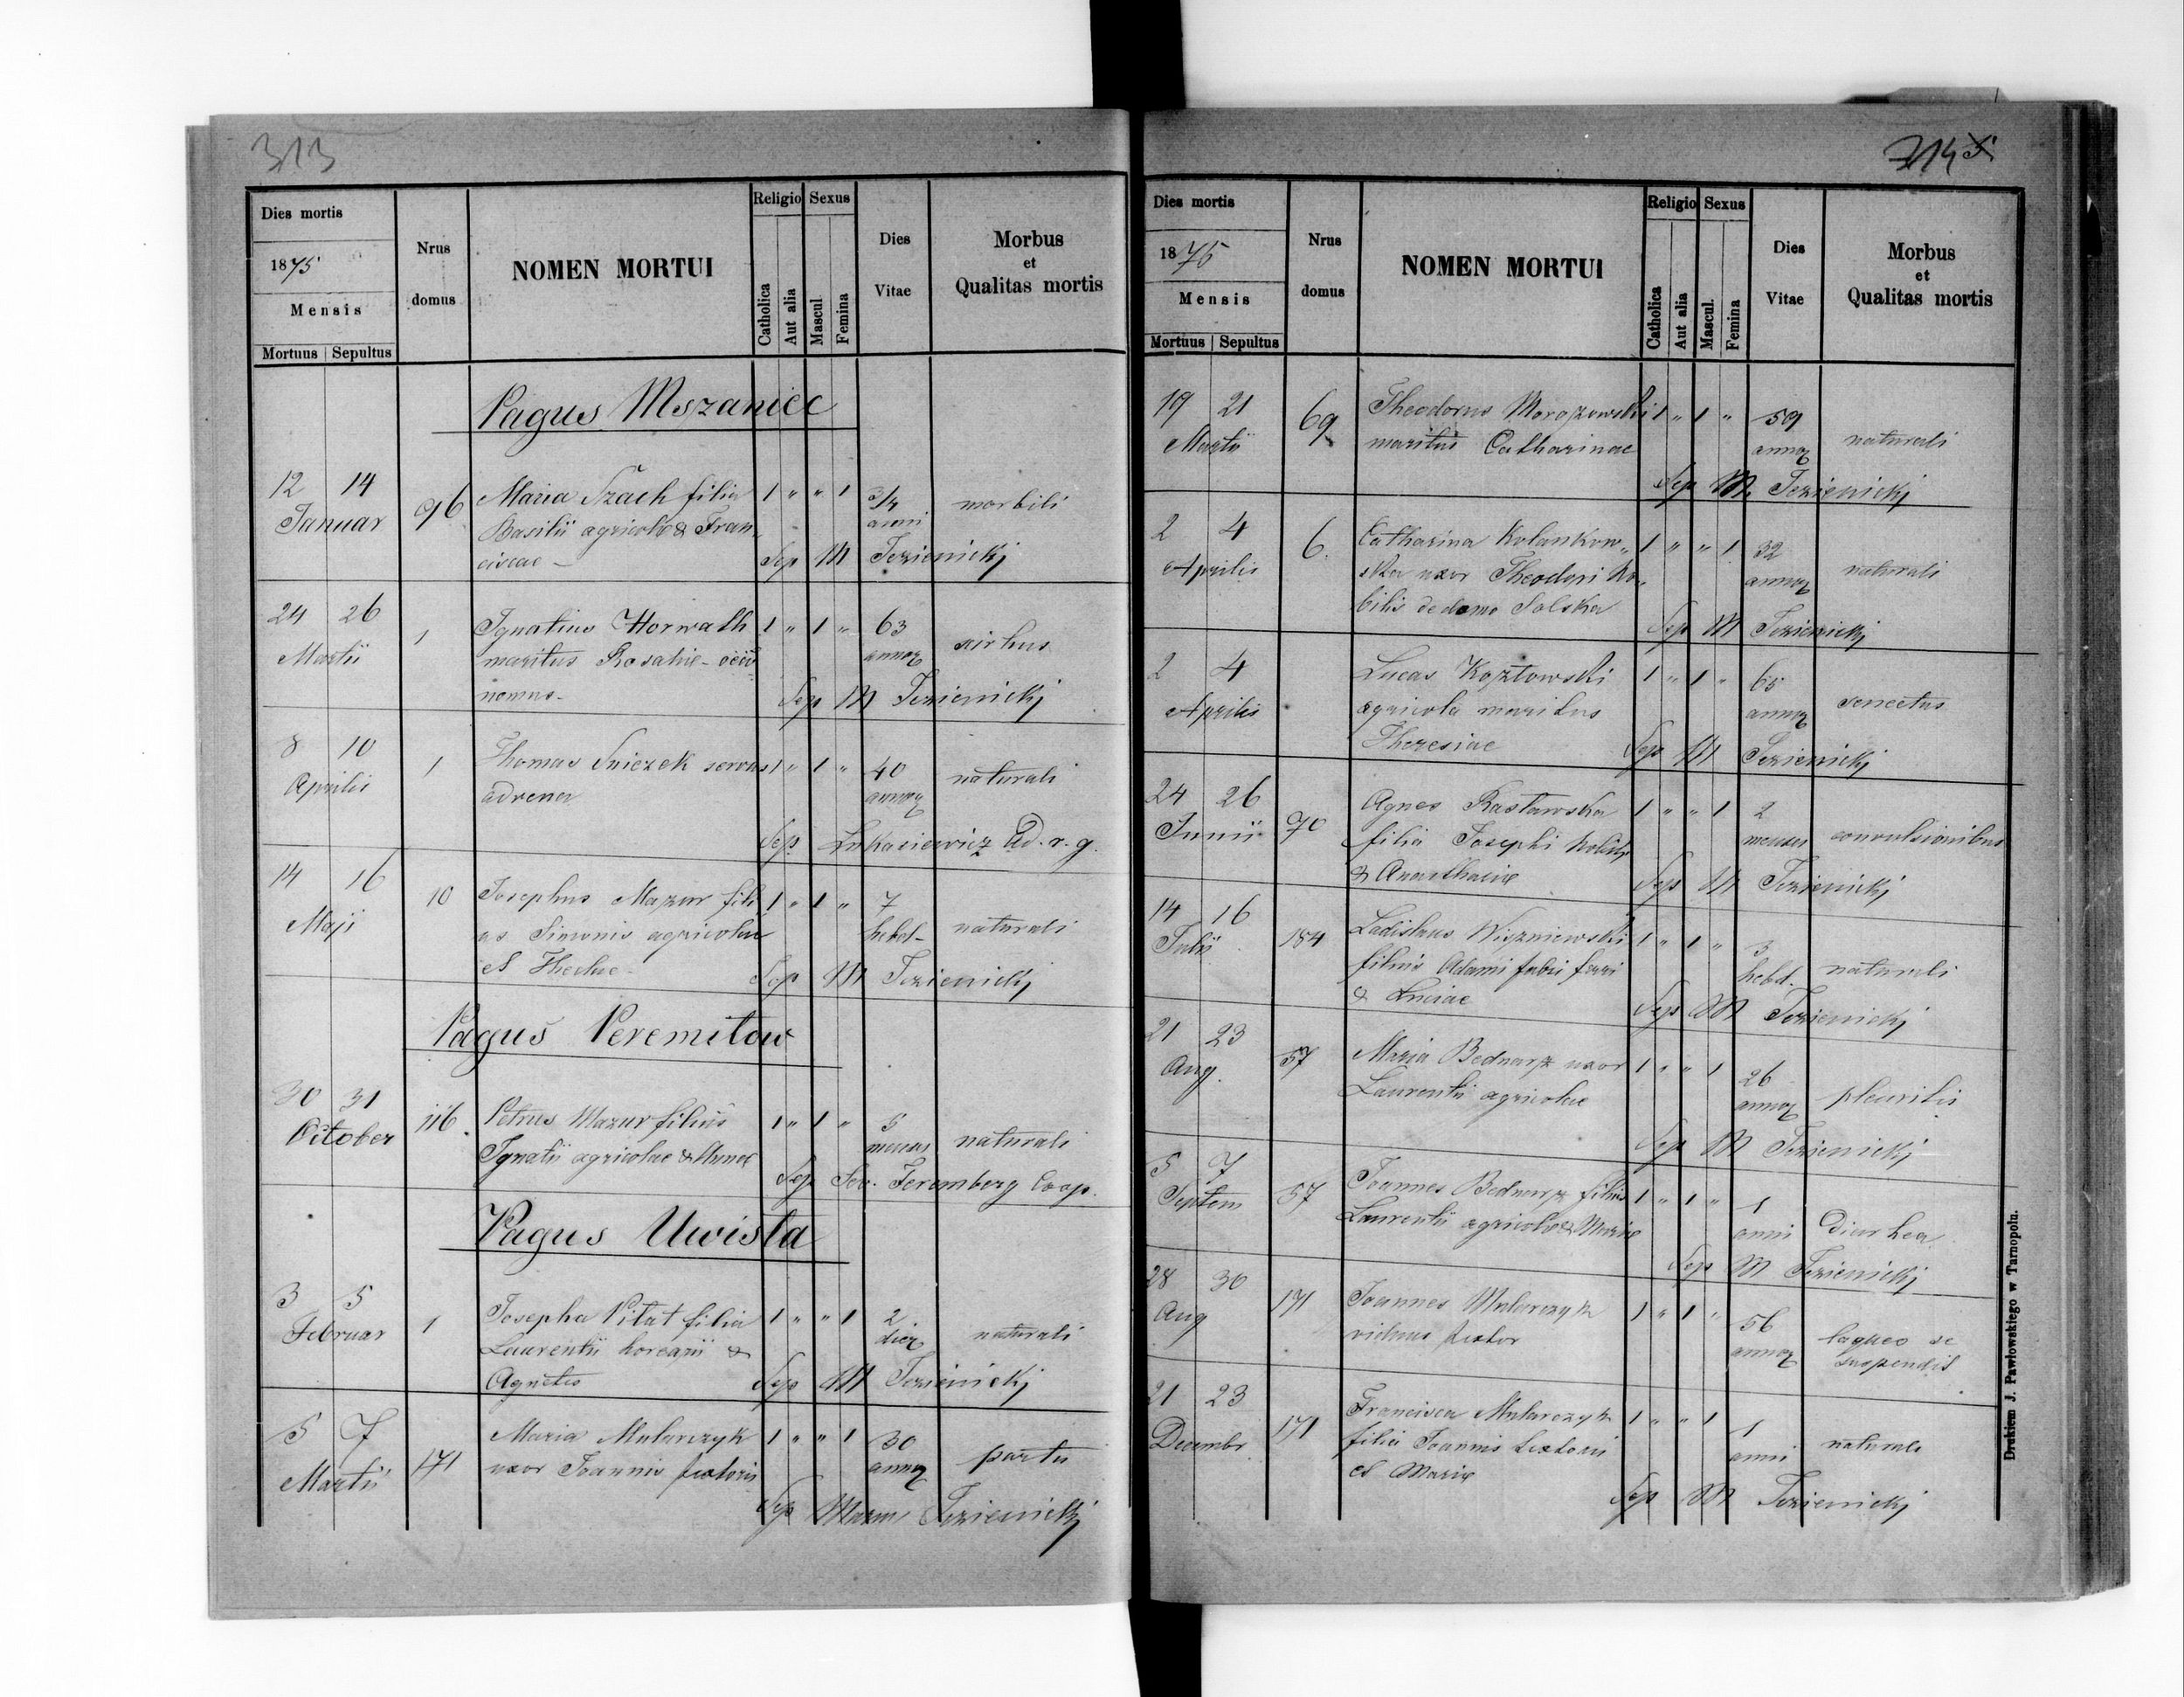 313
Dies mortis
1875
Mensis
Mortuus Sepultus
Nrus domus
NOMEN MORTUI
Religio
Catholica
Aut alia
Sexus
Mascul
Femina
Dies Vitae
Morbus
et
Qualitas mortis
Pagus Mszaniec
12 14 96 Maria Szach filia 1 " " 1 3/4 morbili
Januar Basilii agricolae & Fran= anni
ciscae Sep M Jezienickj
24 26 1 Ignatius Horwath 1 " 1 " 63
Martii maritus Rosaliae annor
nomus Sep M Jezienickj
8 10 1 Thomas Sniezek servus 1 " 1 " 40 naturali
Aprilis advena annor
Sep Lukasiewicz Ad. r. g.
14 16 10 Josephus Mazur fili 1 " 1 " 7 naturali
Maji us Simonis agricolae hebd
et Theclae Sep M Jezienickj
Pagus Peremilow
30 31 116. Petrus Mazur filius 1 " 1 " 5 naturali
October Ignatii agricolae & Annae menses
Sep Coop.
Pagus Uwisla
3 5 1 Josepha Pitat filia 1 " " 1 2 naturali
Februar Laurentii & dier
Agnetis Sep M Jezienickj
5 7 171 Maria Mularczyk 1 " " 1 30 partu
Martii uxor Joannis textoris annor
Sep Jezienickj
Dies mortis
1875
Mensis
Mortuus Sepultus
Nrus domus
NOMEN MORTUI
Religio
Catholica
Aut alia
Sexus
Mascul.
Femina
Dies Vitae
Morbus
et
Qualitas mortis
19 21 69 Theodorus Morozowski 1 " 1 " 59 naturali
Martii maritus Catharinae annor
Sep M. Jezienickj
2 4 6. Catharina Kolankow= 1 " " 1 32 naturali
Aprilis ska uxor Theodori No= annor
bilis de domo Solska
Sep M Jezienickj
2 4 Lucas Kozlowski 1 " 1 " 65 senectus
Aprilis agricola maritus annor
Theresiae Sep M Jezienickj
24 26 70 Agnes Rastawska 1 " " 1 2 convulsionibus
Junii filia Josephi Nobilis menses
& Anasthasiae Sep M Jezienickj
14 16 184 Ladislaus Wiszniewski 1 " 1 " 3 naturali
Julii filius Adami fabri ferri hebd.
& Luciae Sep M Jezienickj
21 23 57 Maria Bednarz uxor 1 " " 1 26 pleuritis
Aug. Laurentii agricolae annor
Sep M Jezienickj
5 7 57 Joannes Bednarz filius 1 " 1 " 1 Diarhea
Septem Laurentii agricolae & Mariae anni
Sep M Jezienickj
28 30 171 Joannes Mularczyk 1 " 1 " 56 laqueo se
Aug viduus textor annor suspendit
21 23 171 Francisca Mularczyk 1 " " 1 1 naturali
Decembr filia Joannis textoris anni
et Mariae
Sep M Jezienickj
Drukiem J. Pawłowskiego w Tarnopolu.